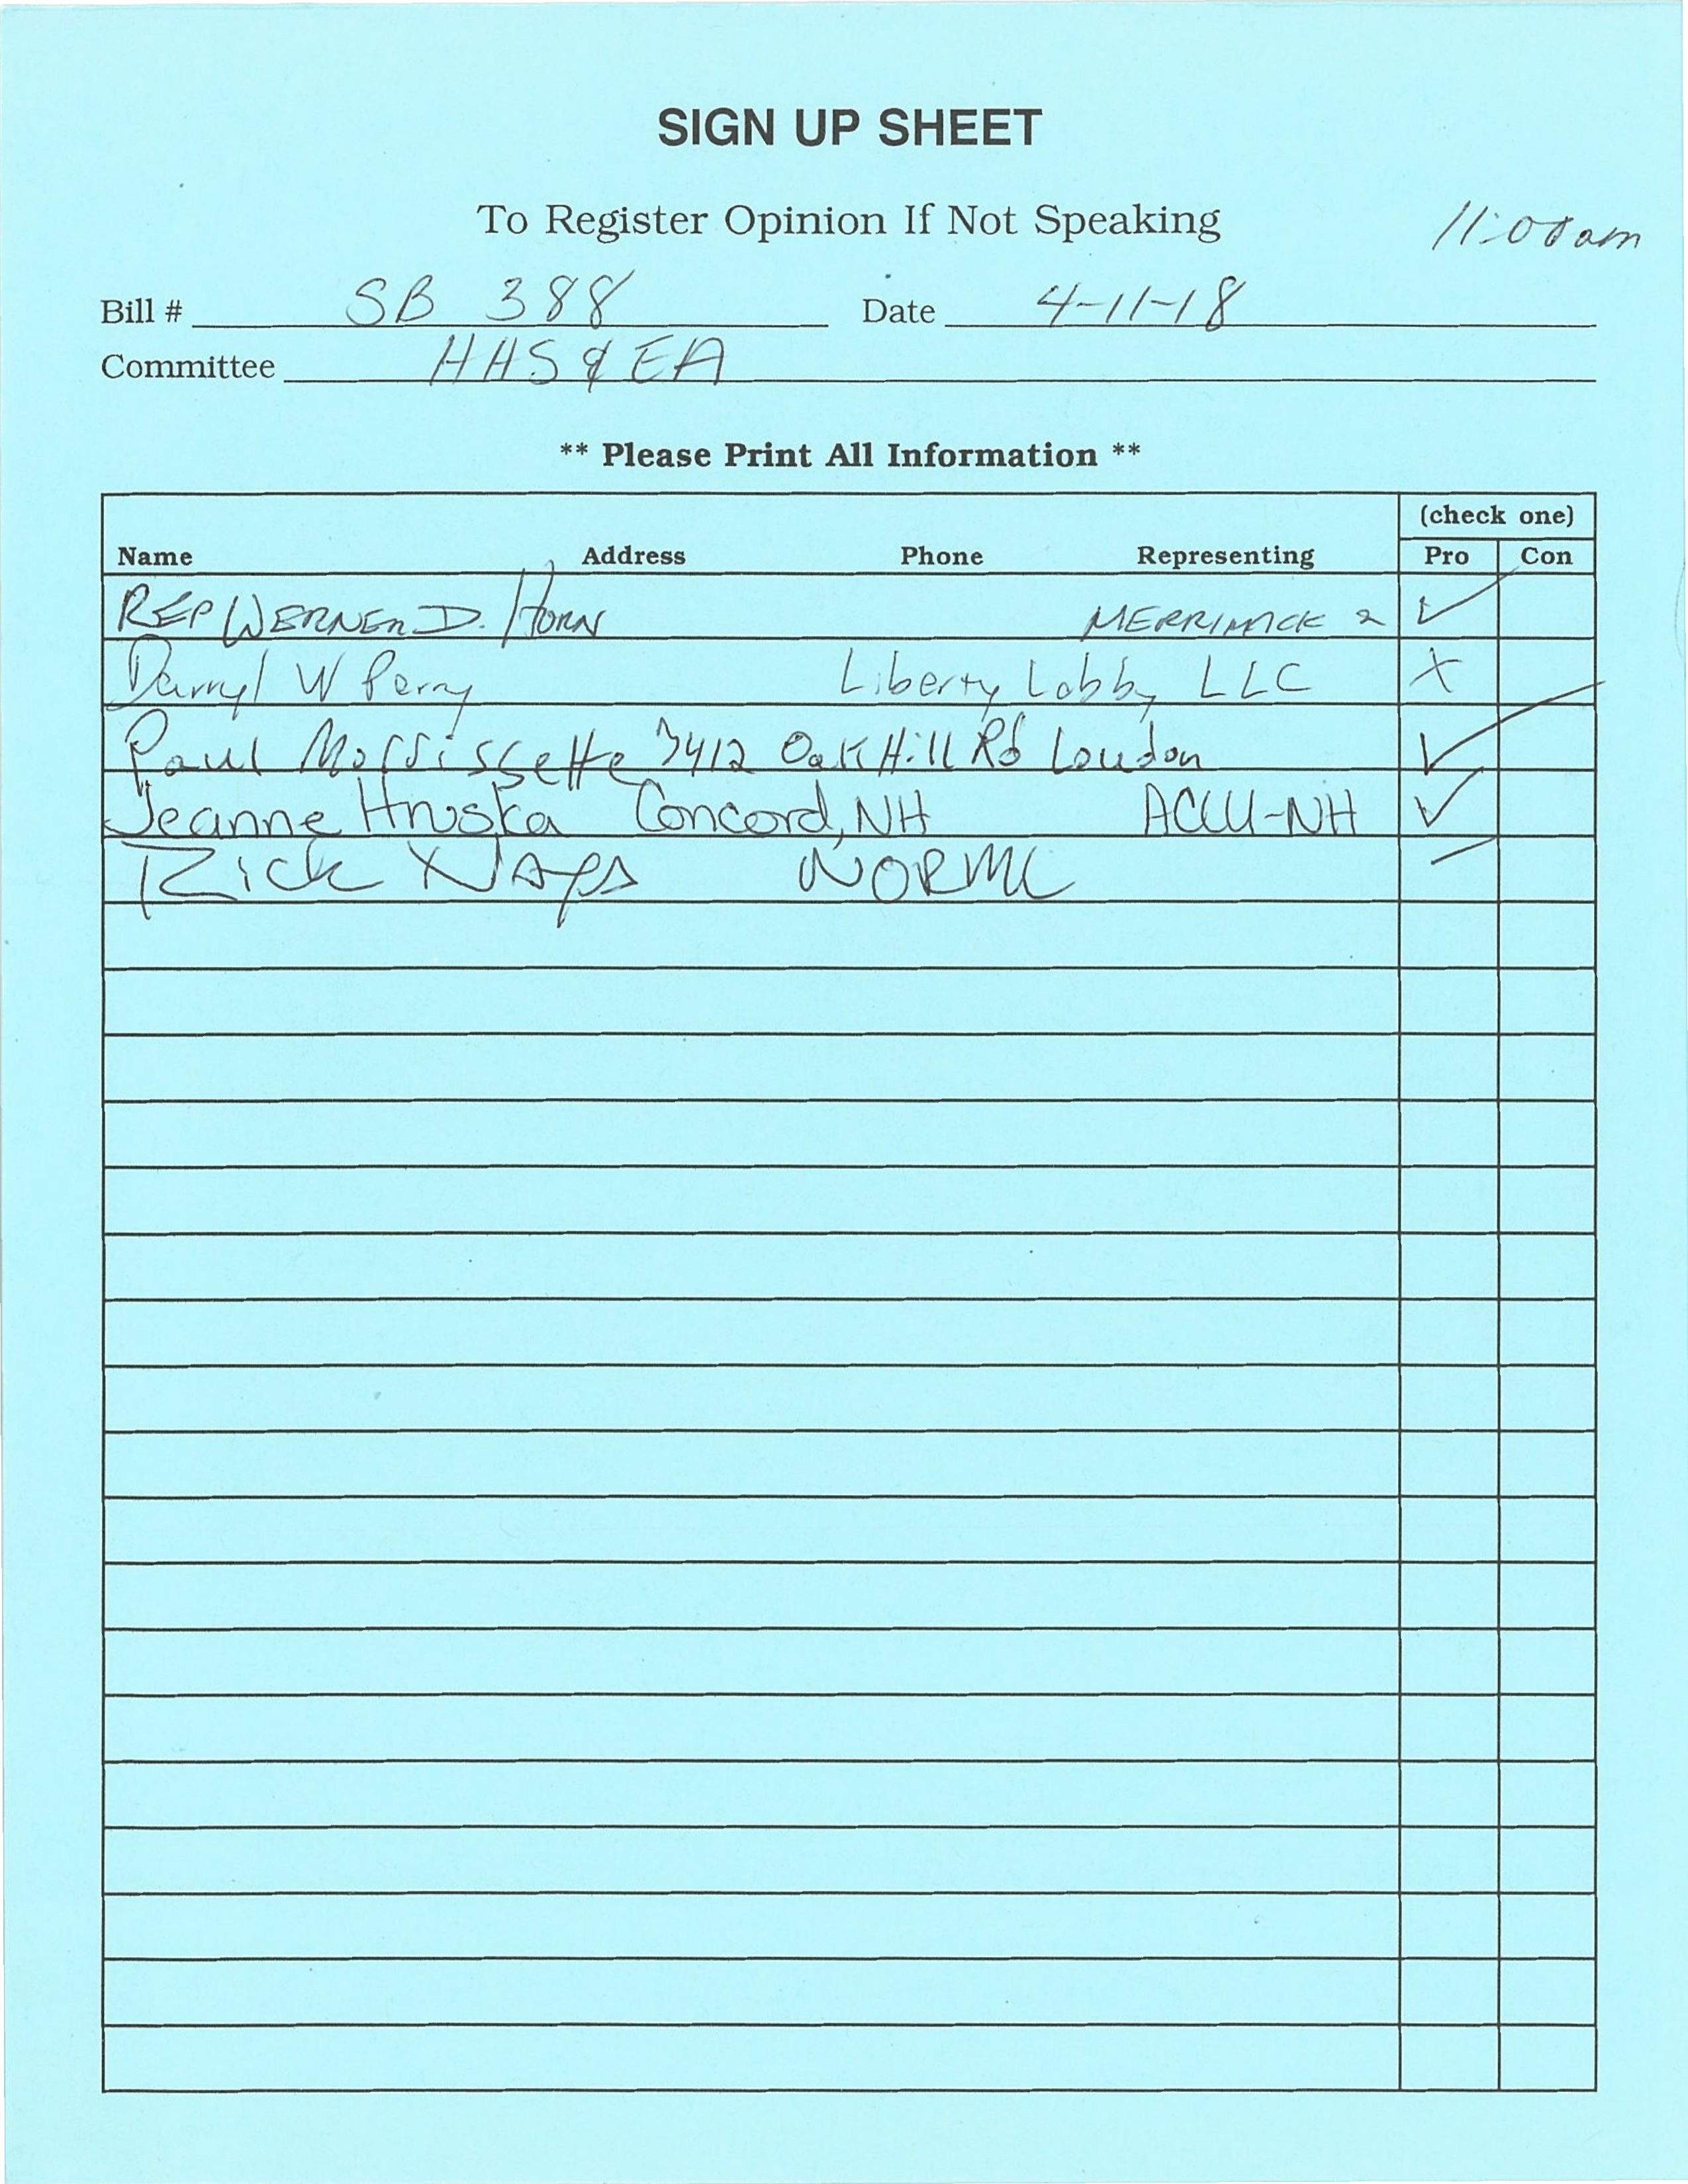 SIGN UP SHEET
To Register Opinion If Not Speaking
11:00am
Bill # SB 388 Date 4-11-18
Committee HHS & EA
** Please Print All Information **
(check one)
Name Address Phone Representing Pro Con
REP WERNER D. HORN MERRIMACK 2 ✓
Darryl W Perry Liberty Lobby LLC X
Paul Morrissette 7412 Oak Hill Rd Loudon ✓
Jeanne Hruska Concord, NH ACLU-NH ✓
Rick Naya NORML